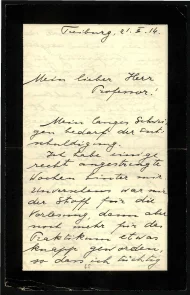 Freiburg, 21. II. 14.
Mein lieber Herr
Professor!
Mein langes Schwei-
gen bedarf der Ent-
schuldigung.
Ich habe einige
recht angestrengte
Wochen hinter mir.
war mir
der Stoff für die
Vorlesung, dann aber
noch mehr für das
Praktikum etwas
knapp geworden,
so dass ich tüchtig